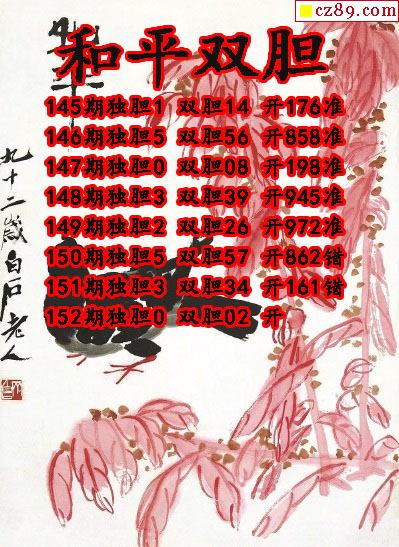 cz89.com
和平双胆
145期独胆1 双胆14 开176准
146期独胆5 双胆56 开858准
147期独胆0 双胆08 开198准
148期独胆3 双胆39 开945准
149期独胆2 双胆26 开972准
150期独胆5 双胆57 开862错
151期独胆3 双胆34 开161错
152期独胆0 双胆02 开
九十二歲白石老人